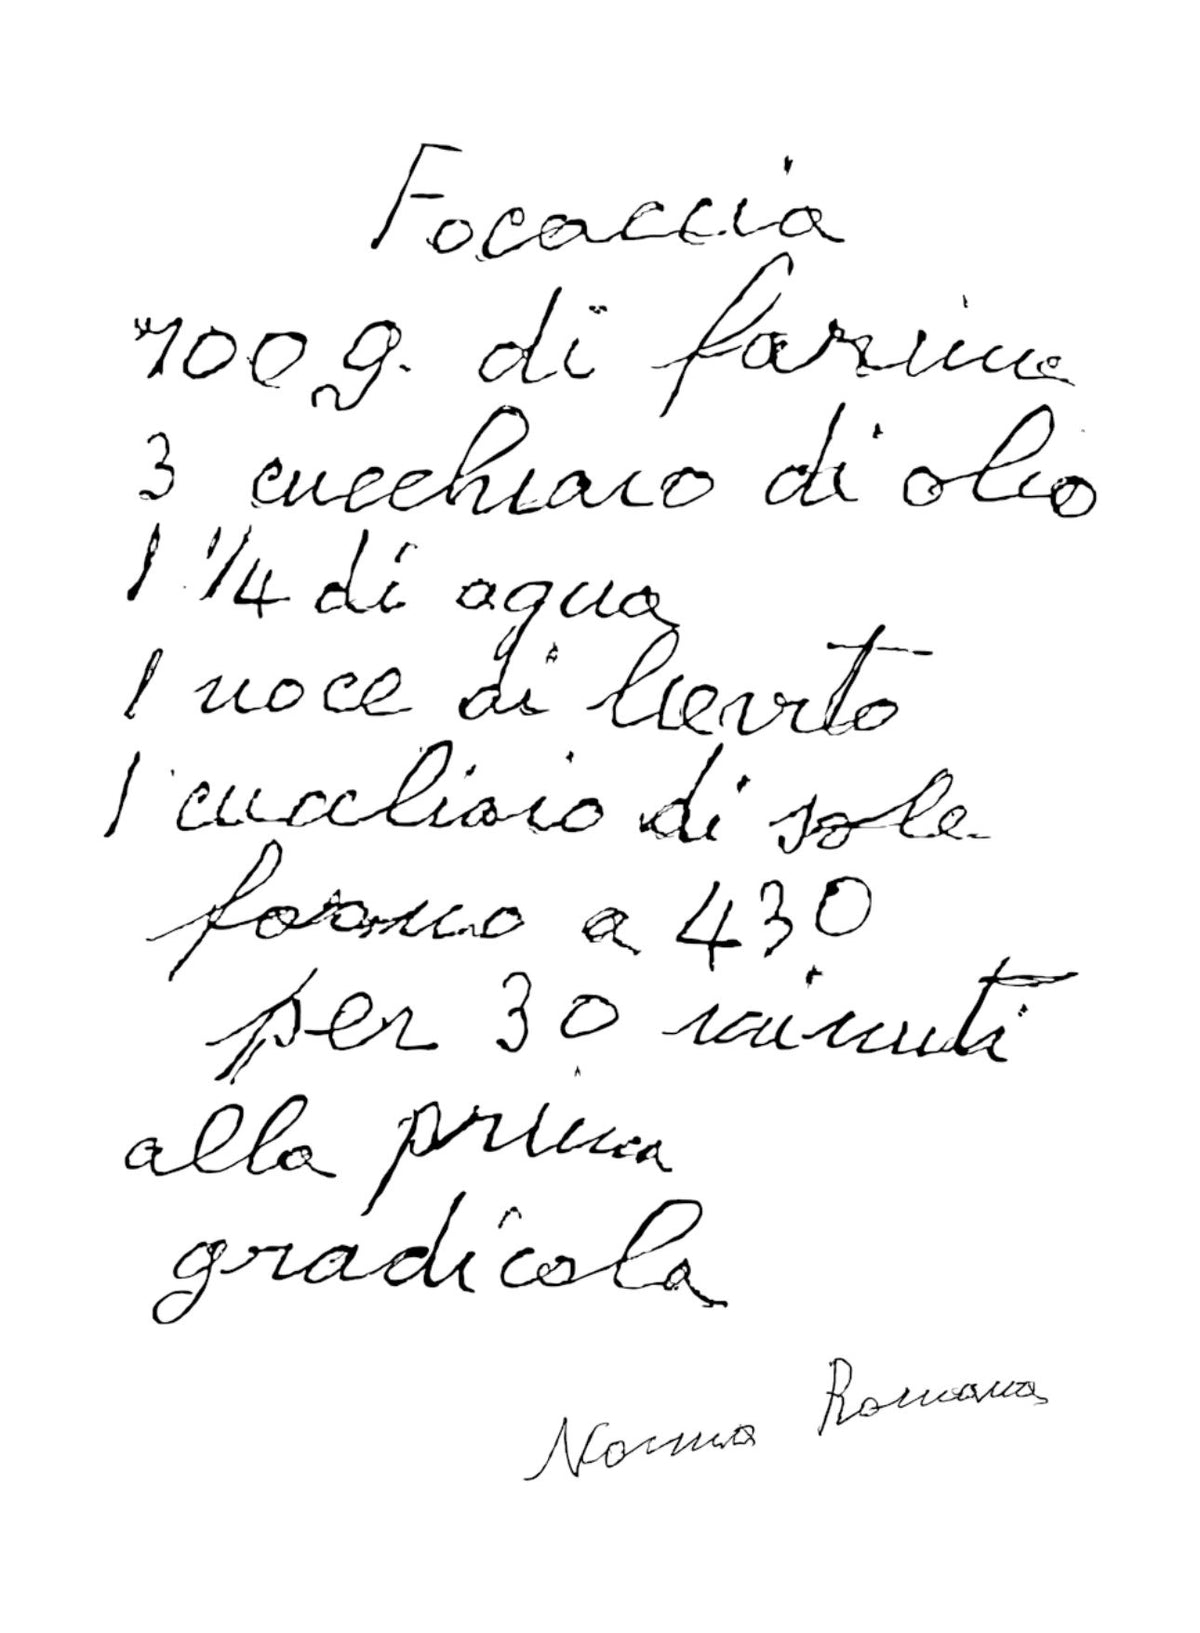 Focaccia
700 g. di farina
3 cucchiaio di olio
1 1/4 di aqua
1 noce di lievito
1 cucchiaio di sale
forno a 430
per 30 minuti
alla prima
gradicola
Nonna Romana